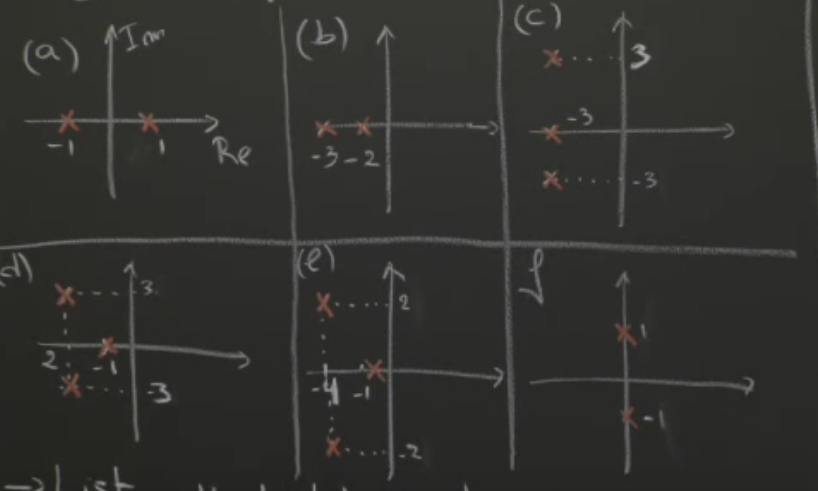 (a) Im
-1 1 Re
(b)
-3 -2
(c)
3
-3
-3
d)
3
2 -1
-3
(e)
2
-4 -1
-2
f
1
-1
→ List